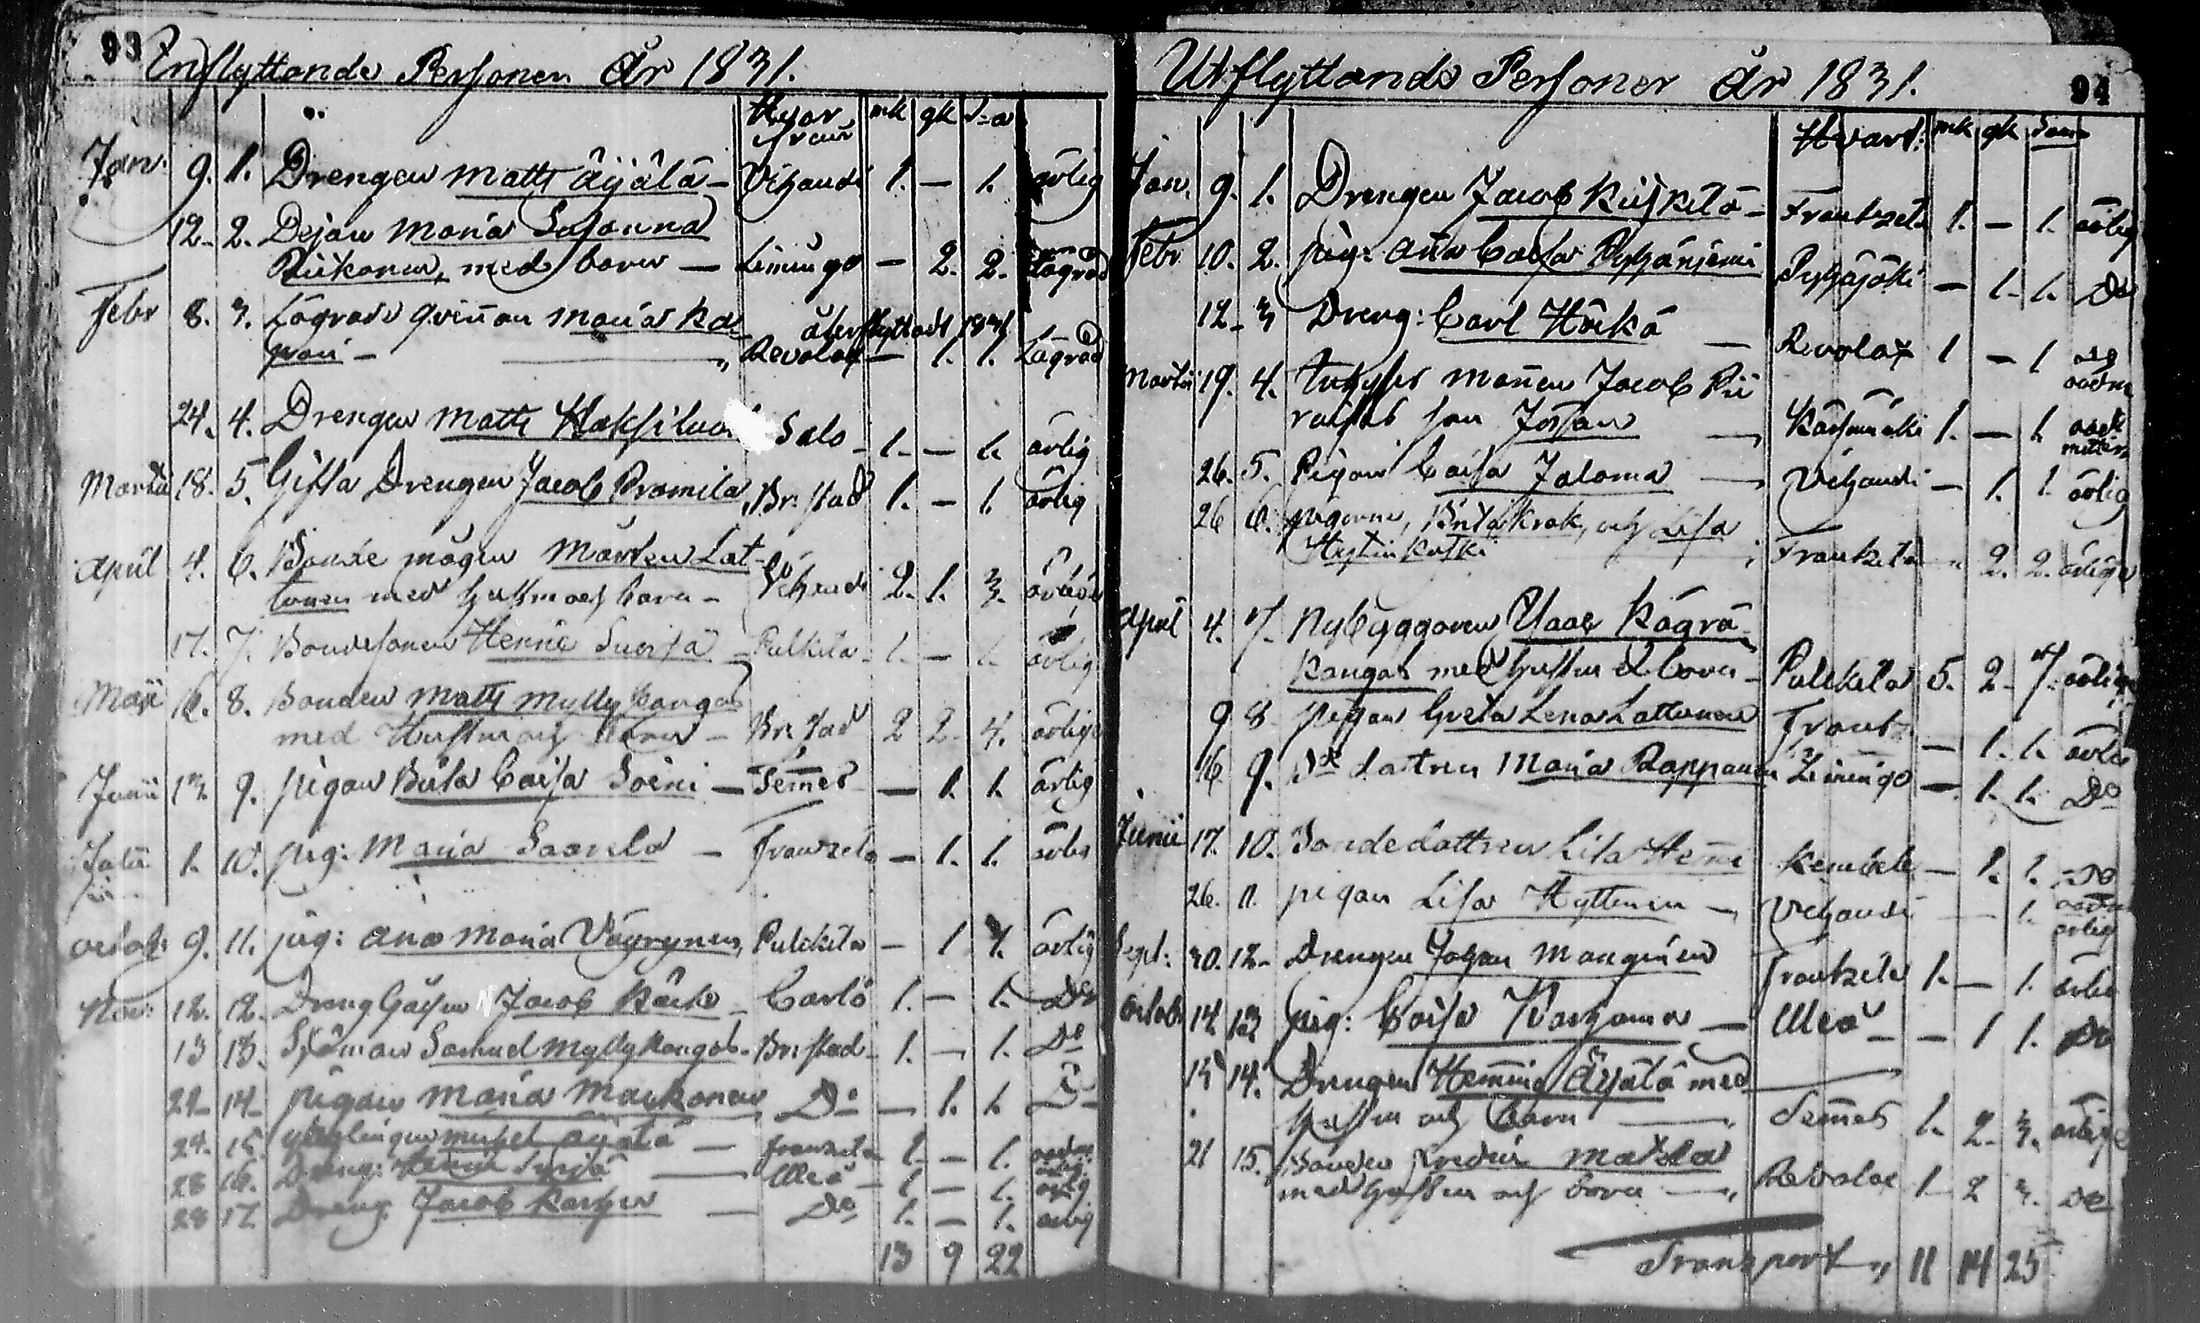 93
Inflyttande Personer År 1831.
Hvar från mk qk S:a
Jan: 9. 1. Drengen Matts Äijälä – Vihandi 1. – 1. ärlig
12. 2. Dejan Maria Susanna
Piikonen, med barn – Limingo – 2. 2. Lägrad
Febr 8. 3. Lägrade Qvinnan Maria
återflyttadt 1831
Revolax – 1. 1. Lägrad
24. 4. Drengen Matts Salo – 1. – 1. ärlig
Martii 18. 5. Gifta Drengen Jacob Pramila, Br:stad 1. – 1. ärlig
April 4. 6. Bonde mågen Mårten Lat-
tunen med hustru och barn – Vihandi 2. 1. 3.
17. 7. Bondesonen Henric – Pulkila 1. – 1. ärlig
Maji 12. 8. Bonden Matts Myllykangas
med Hustru och barn – Br:stad 2 2. 4. ärlige
Junii 13. 9. pigan Brita Caisa Soini – Temmes – 1. 1. ärlig
1. 10. pig: Maria Saarela – Frantzila – 1. 1.
October 9. 11. pig: Anna Maria Väyrynen, Pulckila – 1 1. ärlig
Nov: 12. 12. Jacob – Carlö 1. – 1. Do
13 13. Sjöman Samuel Myllykangas – Br:stad – 1. – 1. Do
22. 14. pigan Maria Markanen Do – 1. 1. Do
24. 15. ynglingen Michel Äijälä – Frantzila 1. – 1.
28 16. Dreng: Henric – Uleå – 1 – 1. ärlig
28 17. Dreng Jacob – Do 1. – 1. ärlig
13 9 22
94
Utflyttande Personer År 1831.
Hvart: mk qk Sum
Jan. 9. 1. Drengen Jacob – Frantzila 1. – 1. ärlig
Febr 10. 2. pig: Anna Caisa Pyhäniemi Pyhäjoki – 1. 1. Do
12. 3 Dreng: Carl – Revolax 1 – 1
Martii 19. 4. Mannen Jacob
son Johan – Kärsämäki 1. – 1.
26. 5. Pigan Caisa Jaloma – Vihandi – 1. 1. ärlig
26 6. pigorna, Brita Krok, och Lisa
Frantzila 2. 2. ärliga
April 4. 7. Nybyggaren Isaac
kangas med hustru & barn – Pulckila 5. 2. 7. ärlige
9 8 pigan Greta Lena Lattunen Frantz: – 1. 1.
16 9. Maria Rappanen Limingo – 1. 1. Do
Junii 17. 10. Bondedottren Lisa Kempele – 1. 1. Do
26. 11. pigan Lisa Hyttinen – Vihandi – 1. ärlig
Sept: 30. 12. Drengen Johan Manginen Frantzila 1. – 1. ärlig
October 14 13 pig: Caisa – Uleå – 1 1. Do
15 14. Drengen Henning Äijälä med
hustru och barn – Temmes 1. 2. 3.
21 15. Bonden Fredric Matila
med hustru och barn – Revolax 1 2 3. Do
Transport 11 14 25